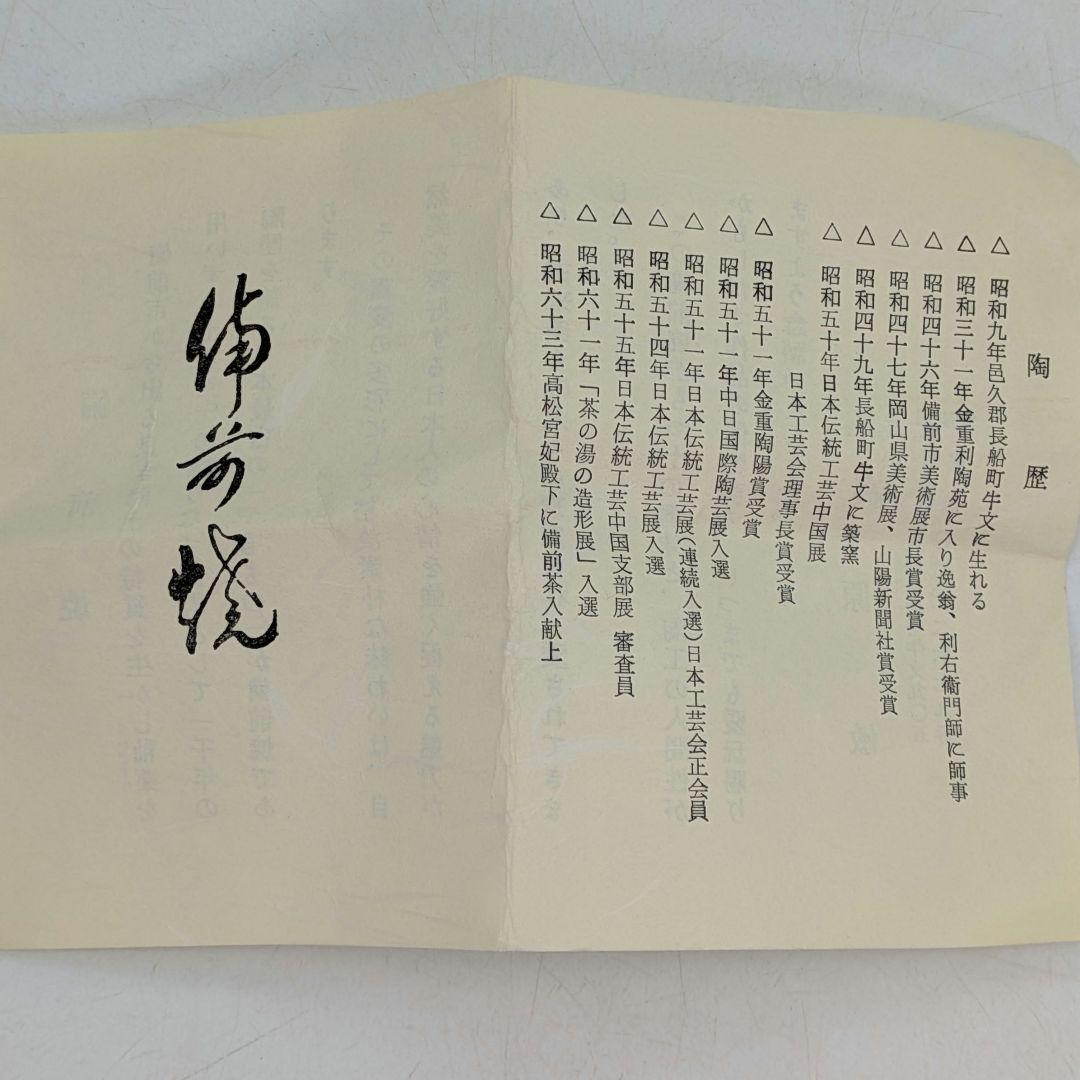 陶歴
△ 昭和九年邑久郡長船町牛文に生れる
△ 昭和三十一年金重利陶苑に入り逸翁、利右衞門師に師事
△ 昭和四十六年備前市美術展市長賞受賞
△ 昭和四十七年岡山県美術展、山陽新聞社賞受賞
△ 昭和四十九年長船町牛文に築窯
△ 昭和五十年日本伝統工芸中国展
日本工芸会理事長賞受賞
△ 昭和五十一年金重陶陽賞受賞
△ 昭和五十一年中日国際陶芸展入選
△ 昭和五十一年日本伝統工芸展(連続入選)日本工芸会正会員
△ 昭和五十四年日本伝統工芸展入選
△ 昭和五十五年日本伝統工芸中国支部展 審査員
△ 昭和六十一年「茶の湯の造形展」入選
△ 昭和六十三年高松宮妃殿下に備前茶入献上
備前焼